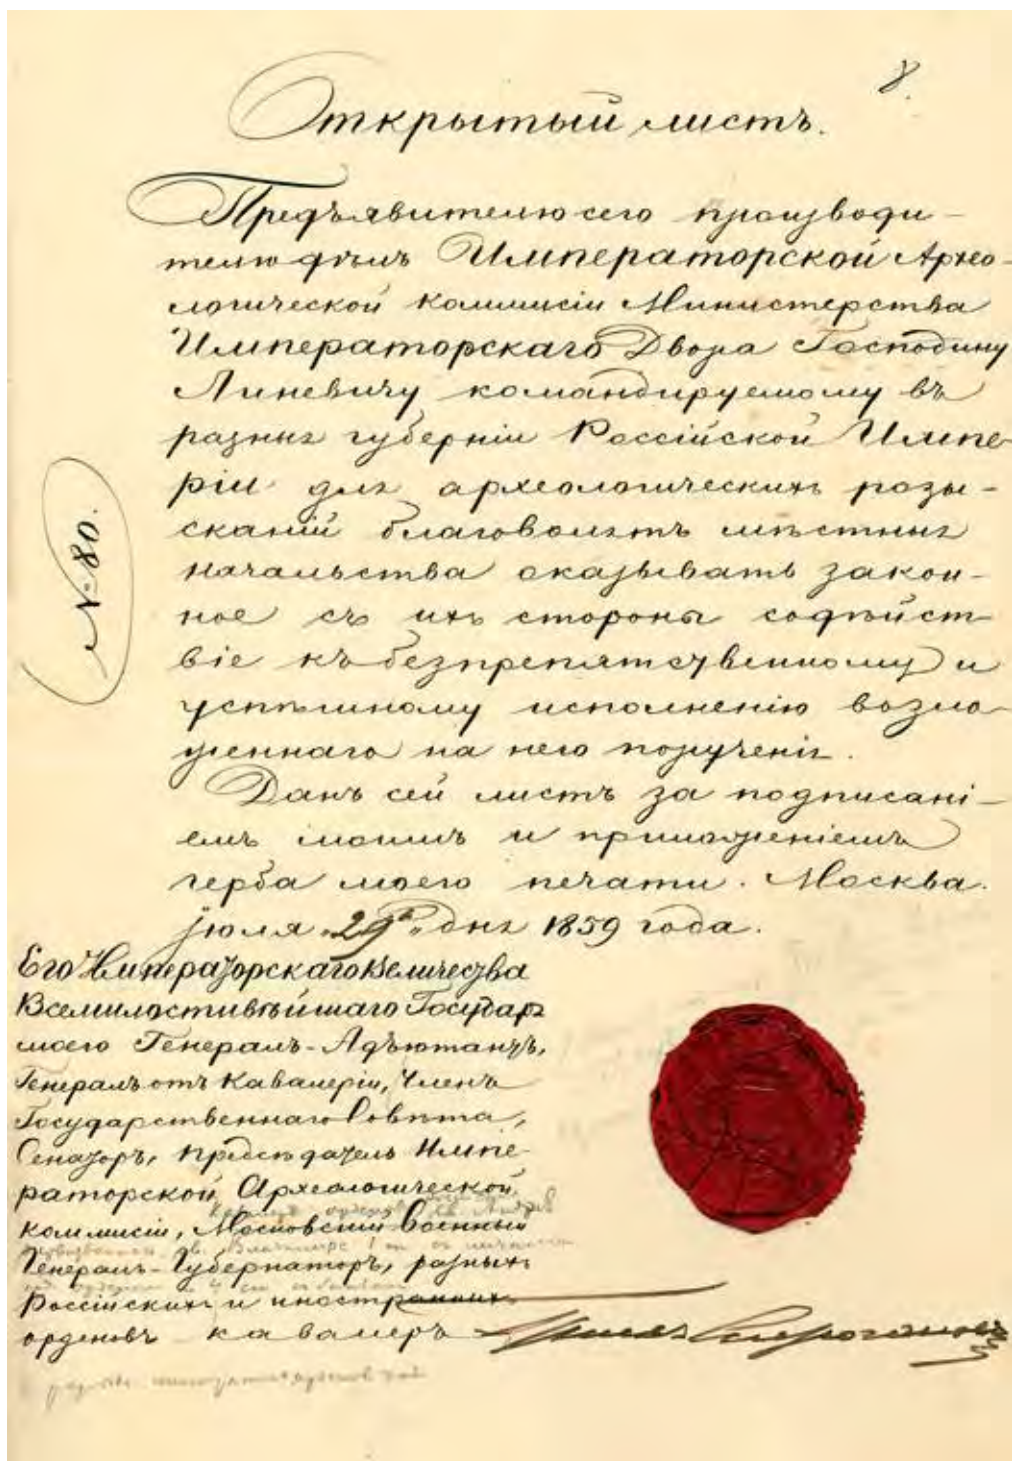 8.
Открытый листъ.
Предъявителю сего производи-
телю дѣлъ Императорской Архео-
логической Коммисіи Министерства
Императорскаго Двора Господину
Линевичу командируемому въ
разныя губерніи Россійской Импе-
ріи для археологическихъ розы-
сканій благоволятъ мѣстныя
начальства оказывать закон-
ное съ ихъ стороны содѣйст-
віе къ безпрепятственному и
успѣшному исполненію возло-
женнаго на него порученія.
№ 80.
Данъ сей листъ за подписані-
емъ моимъ и приложеніемъ
герба моего печати. Москва.
Іюля „29го„ дня 1859 года.
Его Императорскаго Величества
Всемилостивѣйшаго Государя
моего Генералъ-Адъютантъ,
Генералъ отъ Кавалеріи, Членъ
Государственнаго Совѣта,
Сенаторъ, Предсѣдатель Импе-
раторской Археологической
коммисіи, Московскій Военный
Генералъ-Губернаторъ, разныхъ
Россійскихъ и иностранныхъ
орденовъ кавалеръ Графъ Строгоновъ